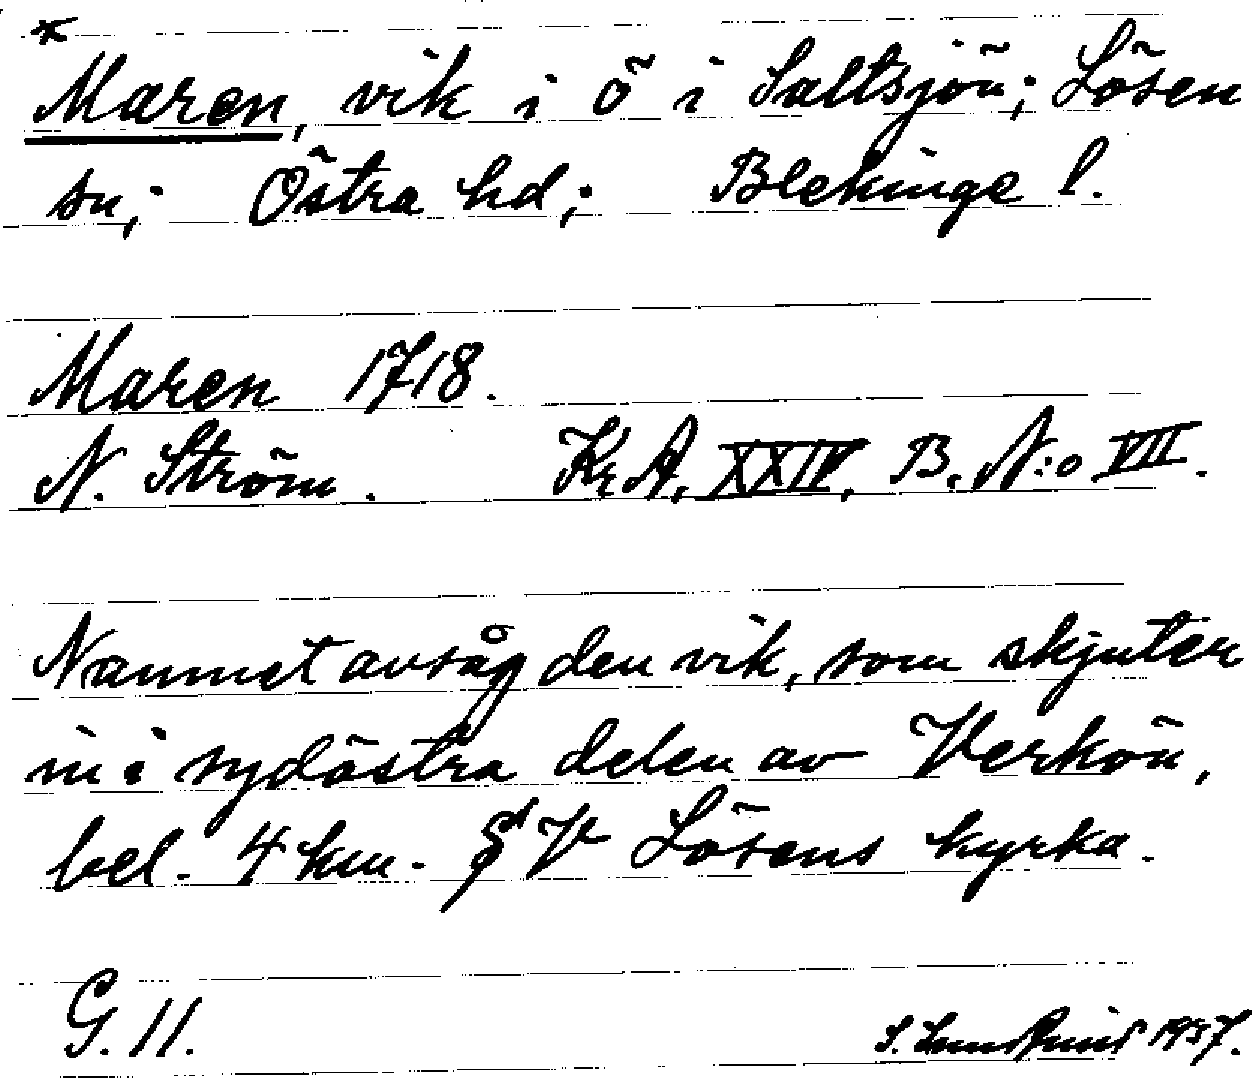 *
Maren, vik i ö i Saltsjön; Lösen
sn; Östra hd; Blekinge l.
Maren 1718.
N. Ström. KrA, XXIV, B, N:o VII.
Namnet avsåg den vik, som skjuter
in i sydöstra delen av Verkön,
bel. 4 km. V Lösens kyrka.
G. 11.
S. 1937.